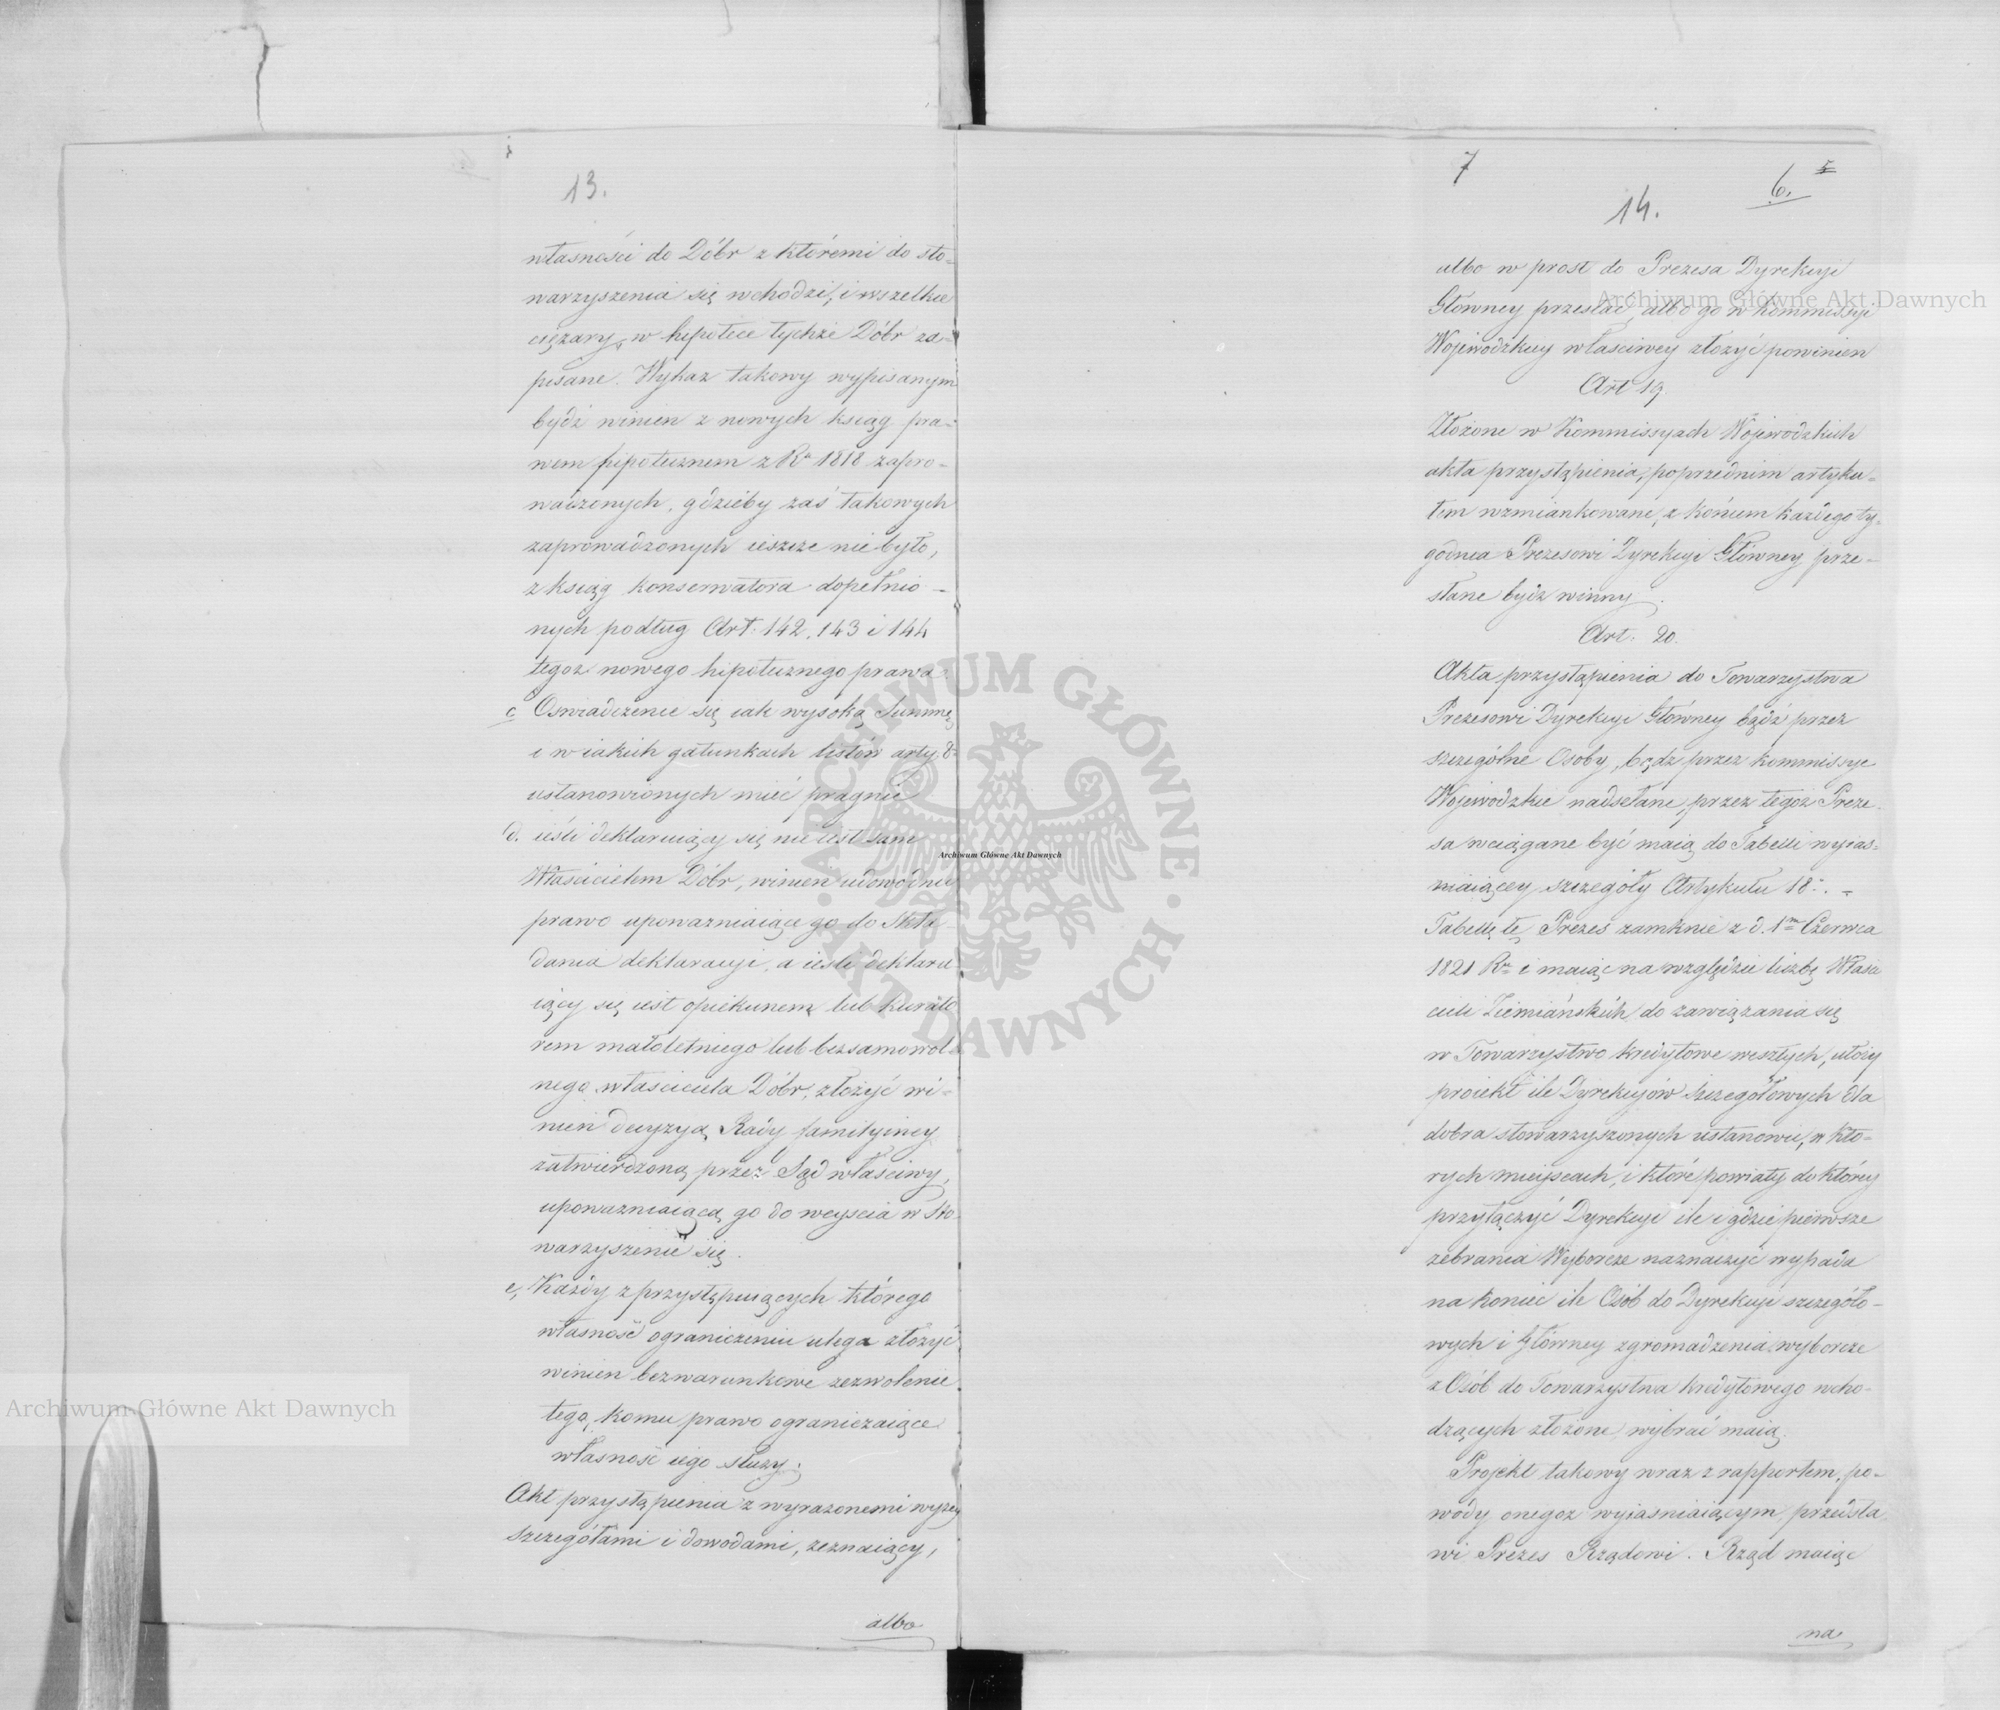 13.
własności do Dóbr z któremi do sto-
warzyszenia się wchodzi, i wszelkie
ciężary, w hipotece tychże Dóbr za-
pisane. Wykaz takowy wypisanym
bydź winien z nowych ksiąg pra-
wem hipotecznem z Ru 1818 zapro-
wadzonych, gdzieby zaś takowych
zaprowadzonych ieszcze nie było,
z ksiąg konserwatora dopełnio-
nych podług Art: 142, 143 i 144
tegoż nowego hipotecznego prawa.
c Oswiadczenie się iak wysoką Summę
i w iakich gatunkach listów arty 8
ustanowionych mieć pragnie
d. ieśli deklaruiący się nie iest sam
Właścicielem Dóbr, winien udowodnić
prawo upoważniaiące go do skła-
dania deklaracyi, a ieśli deklaru-
iący się iest opiekunem lub kurato
rem małoletniego lub bezsamowol-
nego właściciela Dóbr, złożyć wi-
nien decyzyą Rady familyiney
zatwierdzoną przez Sąd właściwy,
upoważniaiącą go do weyscia w Sto-
warzyszenie się.
e, Każdy z przystępuiących którego
własność ograniczeniu ulega złożyć
winien bezwarunkowe zezwolenie
tego, komu prawo ograniczaiące
własność iego służy.
Akt przystąpienia z wyrażonemi wyżey
szczegółami i dowodami, zeznaiący,
albo
7
6. 5
14.
albo w prost do Prezesa Dyrekcyi
Główney przesłać, albo go w Kommissyi
Wojewódzkiey właściwey złożyć powinien
Art 19.
Złożone w Kommissyach Wojewódzkich
akta przystąpienia, poprzednim artyku-
łem wzmiankowane, z końcem każdego ty-
godnia Prezesowi Dyrekcyi Główney prze-
słane bydz winny.
Art: 20.
Akta przystąpienia do Towarzystwa
Prezesowi Dyrekcyi Główney bądź przez
szczególne Osoby, bądz przez kommissye
Wojewodzkie nadsełane, przez tegoż Preze-
sa wciągane być maią do Tabelli wyias-
niaiącey szczegóły Artykułu 18.
Tabellę tę Prezes zamknie z d. 1m Czerwca
1821 Ru i maiąc na względzie liczbę Właś
cicieli Ziemiańskich do zawiązania się
w Towarzystwo kredytowe weszłych, ułoży
proiekt ile Dyrekcyów szczegółowych dla
dobra stowarzyszonych ustanowić, w któ-
rych mieyscach, i które powiaty do którey
przyłączyć Dyrekcyi ile i gdzie pierwsze
zebrania Wyborcze naznaczyć wypada
na koniec ile Osób do Dyrekcyi szczegóło-
wych i Główney zgromadzenia wyborcze
z Osób do Towarzystwa kredytowego wcho-
dzących złożone, wybrać maią.
Projekt takowy wraz z rapportem, po-
wody onegoż wyiasniaiącym, przedsta
wi Prezes Rządowi. Rząd maiąc
na
Archiwum Główne Akt Dawnych
Archiwum Główne Akt Dawnych
Archiwum Główne Akt Dawnych
ARCHIWUM GŁÓWNE · AKT DAWNYCH ·